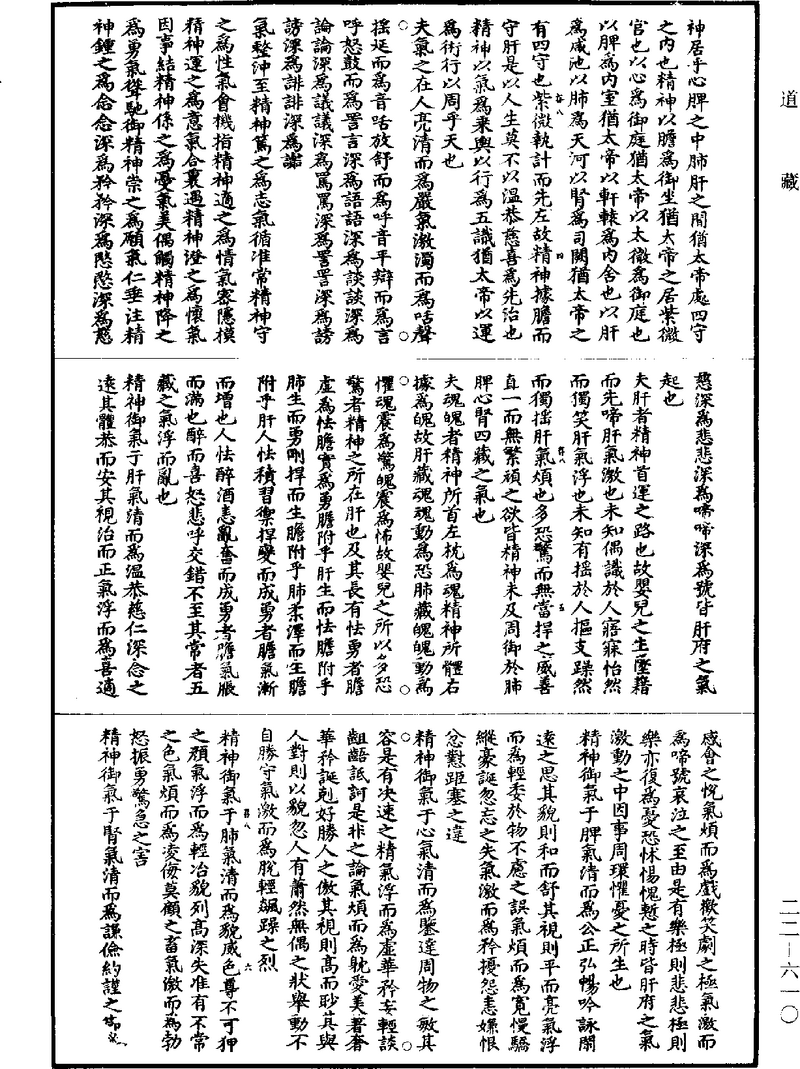 道藏
神居乎心脾之中肺肝之間猶太帝處四守
之内也精神以膽爲御坐猶大帝之居紫微
宮也以心爲御庭猶太帝以太微爲御庭也
以脾爲内室猶太帝以軒轅爲内舍也以肝
爲咸池以肺爲天河以腎爲司闕猶太帝之
有四守也紫微執計而先左故精神據膽而
守肝是以人生莫不以温恭慈喜爲先治也
精神以氣爲乗輿以行爲五識猶太帝以運
爲術行以周乎天也
夫氣之在人亮清而爲嚴氣激濁而爲咶聲
揺延而爲音咶放舒而爲呼音平辯而爲言
呼怒鼓而爲詈言深爲語語深爲談談深爲
論論深爲議議深爲罵罵深爲詈詈深爲謗
謗深爲誹誹深爲謝
氣整沖至精神篤之爲志氣循准常精神守
之爲性氣會機指精神適之爲情氣密隱摸
精神運之爲意氣合裏遇精神澄之爲懷氣
因事結精神係之爲憂氣美偶觸精神降之
爲勇氣聳馳御精神崇之爲願氣仁垂注精
神鍾之爲念念深爲矜矜深爲愍愍深爲慈
慈深爲悲悲深爲啼啼深爲號皆肝府之氣
起也
夫肝者精神首運之路也故嬰兒之生墮藉
而先啼肝氣激也未知偶識於人寤寐怡然
而獨笑肝氣浮也未知有揺於人摳支躁然
而獨揺肝氣煩也多恐驚而無當捍之威善
直一而無繁頑之欲皆精神未及周御於肺
脾心腎四藏之氣也
夫魂魄者精神所首左枕爲魂精神所體右
據爲魄故肝藏魂魂動爲恐肺藏魄魄動爲
懼魂震爲驚魄震爲怖故嬰兒之所以多恐
驚者精神之所在肝也及其長有怯勇者膽
虛爲怯膽實爲勇膽附乎肝生而怯膽附乎
肺生而勇剛捍而生膽附乎肺柔澤而生膽
附乎肝人怯積習禦捍變而成勇者膽氣漸
而増也人怯醉酒恚亂奮而成勇者膽氣脹
而滿也醉而喜怒悲呼交錯不至其常者五
藏之氣浮而亂也
精神御氣于肝氣清而爲温恭慈仁深念之
逺其體恭而安其視治而正氣浮而爲喜適
感會之悅氣煩而爲戲歡笑劇之極氣激而
爲啼號哀泣之至由是有樂極則悲悲極則
樂亦復爲憂恐怵惕愧慙之時皆肝府之氣
激動之中因事周環懼憂之所生也
精神御氣于脾氣清而爲公正弘暢吟詠閑
逺之思其貌則和而舒其視則平而亮氣浮
而爲輕委於物不慮之誤氣煩而爲寛慢驕
縱豪誕忽忘之失氣激而爲矜擾怨恚嫌恨
忿懟距塞之違
精神御氣于心氣清而爲鑒達周物之敏其
容是有決速之精氣浮而爲虛華矜妄輕談
齟齬詆訶是非之論氣煩而爲躭愛美著奢
華矜誕剋好勝人之傲其視則髙而眇其與
人對則以貌忽人有蕭然無偶之狀舉動不
自勝守氣激而爲脫輕飆躁之烈
精神御氣于肺氣清而爲貌威色尊不可狎
之顔氣浮而爲輕冶貌列髙深失准有不常
之色氣煩而爲凌侮莫顧之畜氣激而爲勃
怒振勇驚急之害
精神御氣于腎氣清而爲謙儉約謹之節氣
二二—六一〇